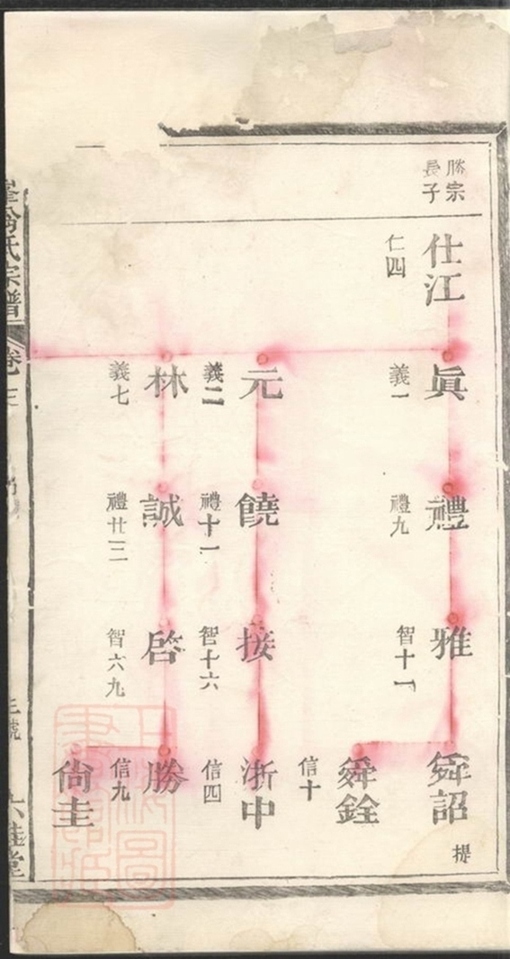 勝宗
長子
仕江
仁四
眞
義一
元
義二
林
義七
禮
禮九
饒
禮十一
誠
禮廿三
雅
智十一
接
智十六
啓
智六九
舜詔
提
舜銓
信十
浙中
信四
勝
信九
尙圭
氏宗譜
卷
六桂堂